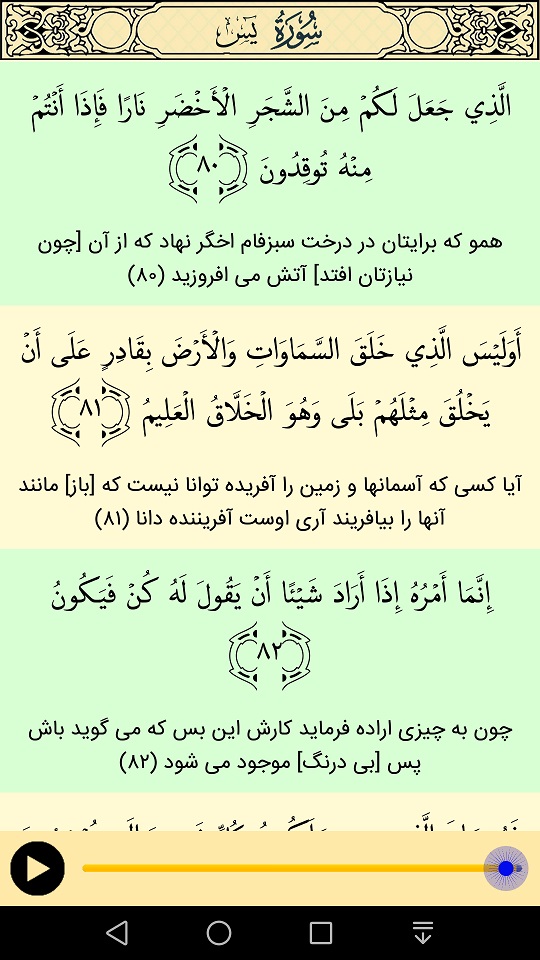 سُورَةُ يَس
الَّذِي جَعَلَ لَكُمْ مِنَ الشَّجَرِ الْأَخْضَرِ نَارًا فَإِذَا أَنْتُمْ
مِنْهُ تُوقِدُونَ ﴿٨٠﴾
همو که برایتان در درخت سبزفام اخگر نهاد که از آن [چون
نیازتان افتد] آتش می افروزید (۸۰)
أَوَلَيْسَ الَّذِي خَلَقَ السَّمَاوَاتِ وَالْأَرْضَ بِقَادِرٍ عَلَى أَنْ
يَخْلُقَ مِثْلَهُمْ بَلَى وَهُوَ الْخَلَّاقُ الْعَلِيمُ ﴿٨١﴾
آیا کسی که آسمانها و زمین را آفریده توانا نیست که [باز] مانند
آنها را بیافریند آری اوست آفریننده دانا (۸۱)
إِنَّمَا أَمْرُهُ إِذَا أَرَادَ شَيْئًا أَنْ يَقُولَ لَهُ كُنْ فَيَكُونُ
﴿٨٢﴾
چون به چیزی اراده فرماید کارش این بس که می گوید باش
پس [بی درنگ] موجود می شود (۸۲)